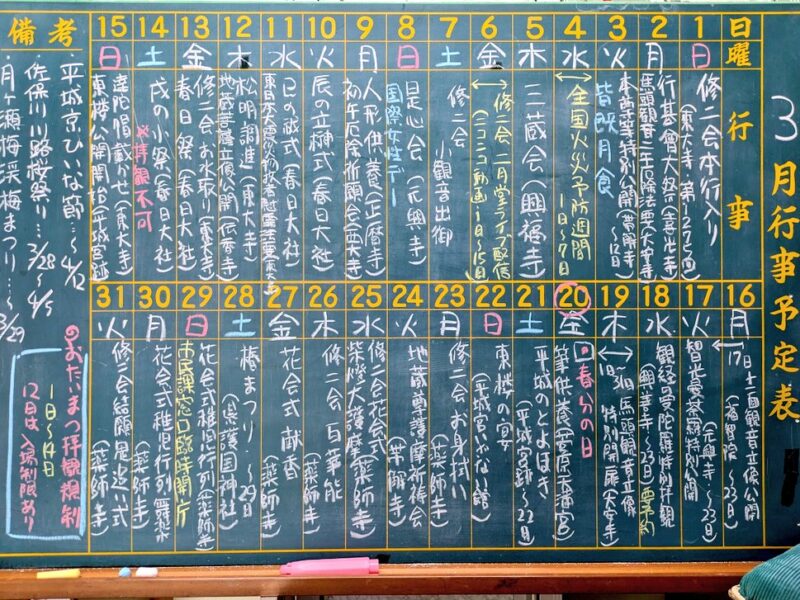 3月行事予定表
日曜 行事
1 日 修二会本行入り
(東大寺
2 月 行基會大祭(喜光寺)
馬頭観音二王厄除法要(大安寺)
3 火 皆既月食
4 水 全国火災予防週間
1日~7日
5 木 三蔵会(興福寺)
6 金 修二会二月堂ライブ配信
(ニコニコ動画・1日~15日)
7 土 修二会
小観音出御
8 日 是心会(元興寺)
国際女性デー
9 月 人形供養(正暦寺)
初午厄除祈願会(西大寺)
10 火 辰の立榊式(春日大社)
11 水 巳の祓式(春日大社)
12 木 松明調進(東大寺)
13 金 修二会お水取り(東大寺)
春日祭(春日大社)
14 土 戌の小祭(春日大社)
※拝観不可
15 日 達陀帽戴かせ(東大寺)
東楼公開開始(平城宮跡)
16 月 17日十一面観音立像公開
~23日)
17 火 智光曼荼羅特別公開
(元興寺 ~23日)
18 水 観経曼荼羅特別拝観
~23日)要予約
19 木 馬頭観音立像
特別開扉(大安寺)
20 金 春分の日
筆供養(菅原天満宮)
21 土 平城のとよほぎ
(平城宮跡~22日)
22 日 東楼の宴
(平城宮いざない館)
23 月 修二会お身拭い
(薬師寺)
24 火 地蔵尊護摩祈祷会
(帯解寺)
25 水 修二会花会式(薬師寺)
柴燈大護摩(薬師寺)
26 木 修二会百華能
(薬師寺)
27 金 花会式 献香
(薬師寺)
28 土 椿まつり~29日
(護国神社)
29 日 花会式稚児行列(薬師寺)
市民課窓口臨時開庁
30 月 花会式稚児行列
(薬師寺)
31 火 修二会結願鬼追い式
(薬師寺)
備考
平城京ひいな節・~4/12
佐保川川路桜祭り…3/28~4/5
月ヶ瀬梅渓梅まつり…~3/29
のおたいまつ拝観規制
1日~14日
12日は入場制限あり